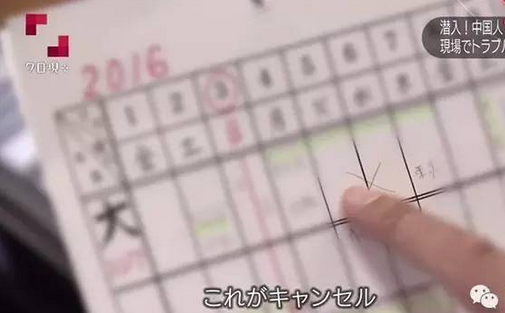 クロ現+
潜入！中国人
現場でトラブル
2016
1 2 3 4 5 6 7 8 9
金 土 日 月 火 水 木 金
大
これがキャンセル